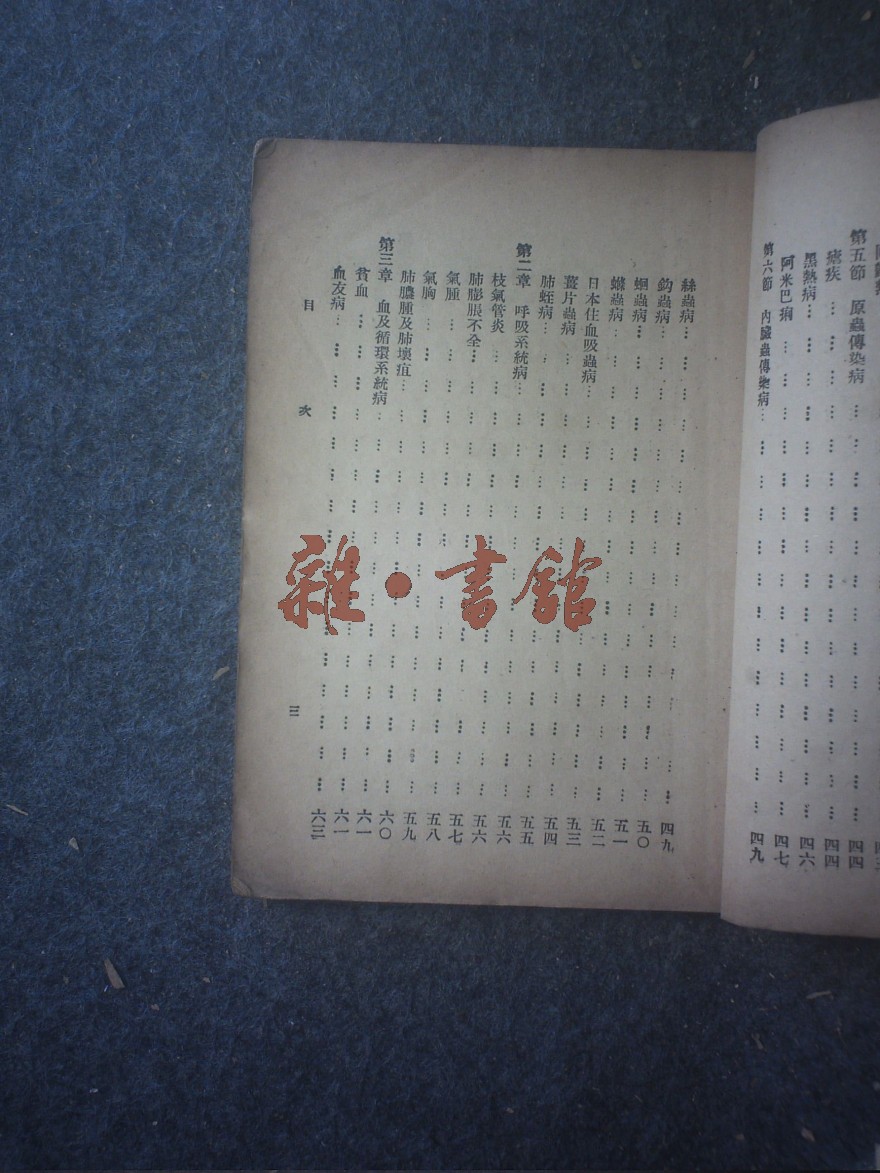 第五節 原蟲傳染病…………四四
瘧疾…………四四
黑熱病…………四六
阿米巴痢…………四七
第六節 內臟蟲傳染病…………四九
絲蟲病…………四九
鈎蟲病…………五〇
蛔蟲病…………五一
蟯蟲病…………五二
日本住血吸蟲病…………五三
薑片蟲病…………五四
肺蛭病…………五五
第二章 呼吸系統病…………五六
枝氣管炎…………五六
肺膨脹不全…………五七
氣腫…………五八
氣胸…………五九
肺膿腫及肺壞疽…………六〇
第三章 血及循環系統病…………六一
貧血…………六一
血友病…………六三
目 次
三
雜·書館